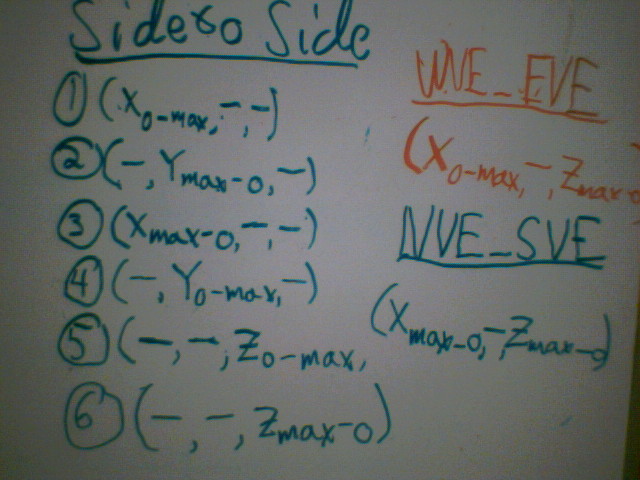 Side to Side
① (X0-max, -, -)
② (-, Ymax-0, -)
③ (Xmax-0, -, -)
④ (-, Y0-max, -)
⑤ (-, -, Z0-max,
⑥ (-, -, Zmax-0)
WVE_EVE
(X0-max, -, Zmax-0)
NVE_SVE
(Xmax-0, -, Zmax-0)